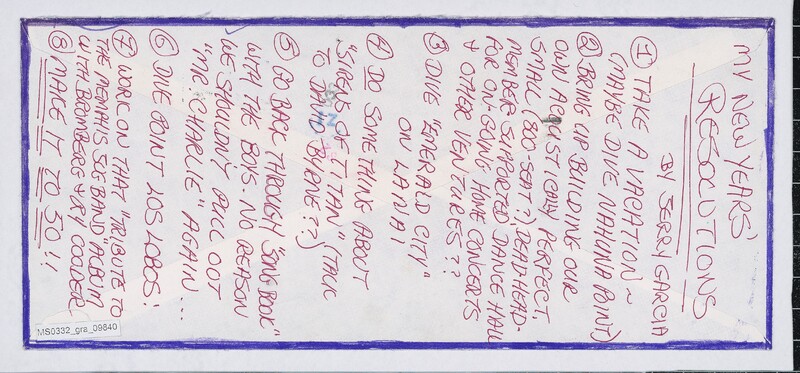 MY NEW YEARS'
RESOLUTIONS
BY JERRY GARCIA
① TAKE A VACATION ~
(MAYBE DIVE NAHUNA POINT)
② BRING UP BUILDING OUR
OWN ACOUSTICALLY PERFECT,
SMALL (800-SEAT?), DEADHEAD-
MEMBER SUPPORTED DANCE HALL
FOR ON-GOING HOME CONCERTS
& OTHER VENTURES??
③ DIVE "EMERALD CITY"
ON LANAI
④ DO SOMETHING ABOUT
"SIRENS OF TITAN" (TALK
TO DAVID BYRNE??)
⑤ GO BACK THROUGH "SONGBOOK"
WITH THE BOYS. NO REASON
WE SHOULDN'T PULL OUT
"MR. CHARLIE" AGAIN...
⑥ DIVE POINT LOS LOBOS!
⑦ WORK ON THAT "TRIBUTE TO
THE MEMPHIS JUG BAND" ALBUM
WITH BROMBERG & RY COODER
⑧ MAKE IT TO 50!!
MS0332_gra_09840